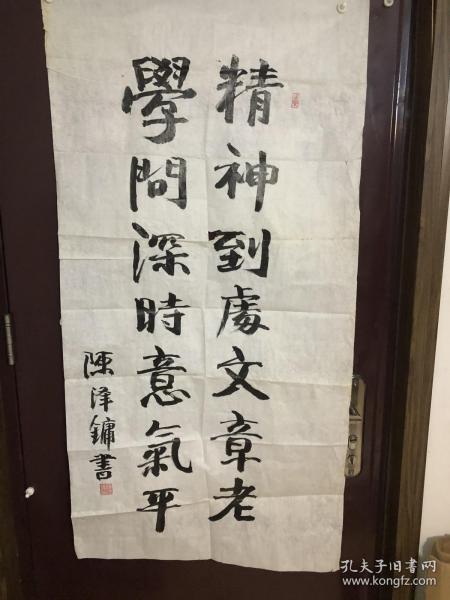 精神到處文章老
學問深時意氣平
陳泽鏞書
孔夫子旧书网
www.kongfz.com